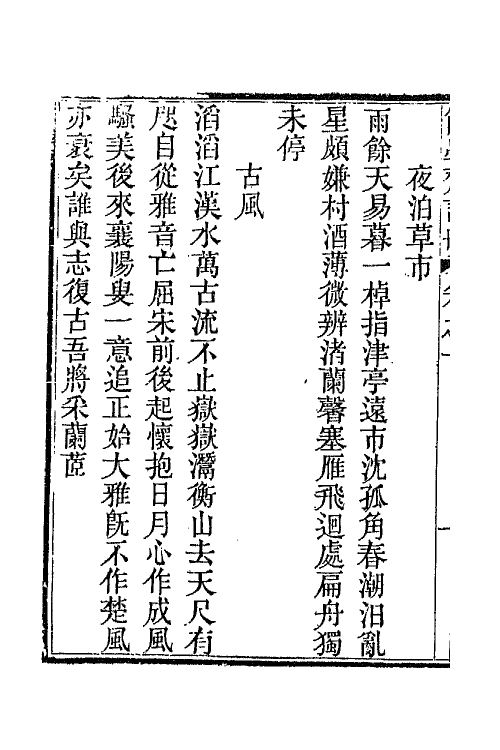 夜泊草市
雨餘天易暮一棹指津亭遠市沈孤角春潮汨亂
星頗嫌村酒薄微辨渚蘭馨塞雁飛迴處扁舟獨
未停
古風
滔滔江漢水萬古流不止嶽嶽灊衡山去天尺有
咫自從雅音亡屈宋前後起懷抱日月心作成風
騷美後來襄陽叟一意追正始大雅旣不作楚風
亦衰矣誰與志復古吾將采蘭茝